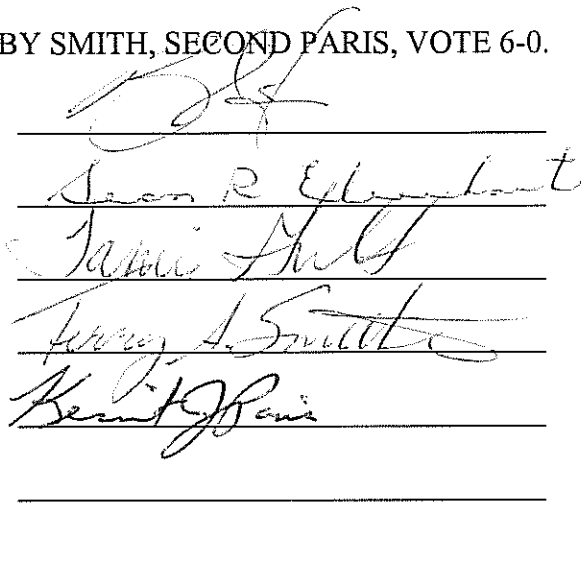 BY SMITH, SECOND PARIS, VOTE 6-0.
Sean R Eberhart
Tami
Terry A. Smith
Kermit J Paris